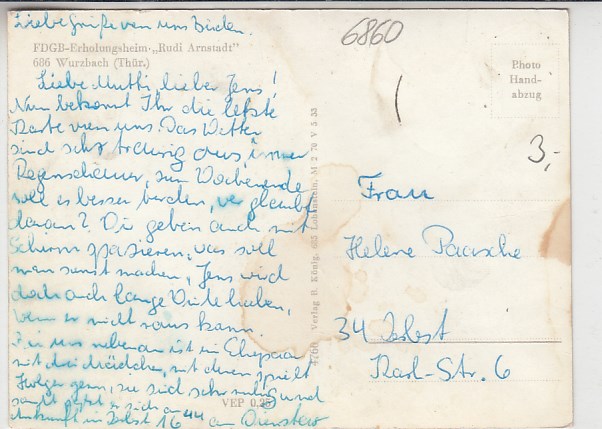 Liebe Grüße von uns Beiden.
FDGB-Erholungsheim „Rudi Arnstadt"
686 Wurzbach (Thür.)
Liebe Mutti, lieber Jens!
Nun bekommt Ihr die letzte
Karte von uns. Das Wetter
sieht sehr traurig aus, immer
Regenschauer, zum Wochenende
soll es besser werden, wer glaubt
daran? Wir gehen auch mit
Schirm spazieren, was soll
man sonst machen, Jens wird
doch auch lange Weile haben,
wenn er nicht raus kann.
uns nebenan ist ein Ehepaar
mit drei Mädchen, mit denen spielt
Holger gern, sie sind sehr ruhig und
sich an
Ankunft in Zerbst 16 44 am Dienstag
VEP 0.25
4700 Verlag R. König, 685 Lobenstein, M 2 70 V 5 33
6860
Photo
Hand-
abzug
3,-
Frau
Helene Paasche
34 Zerbst
Karl-Str. 6